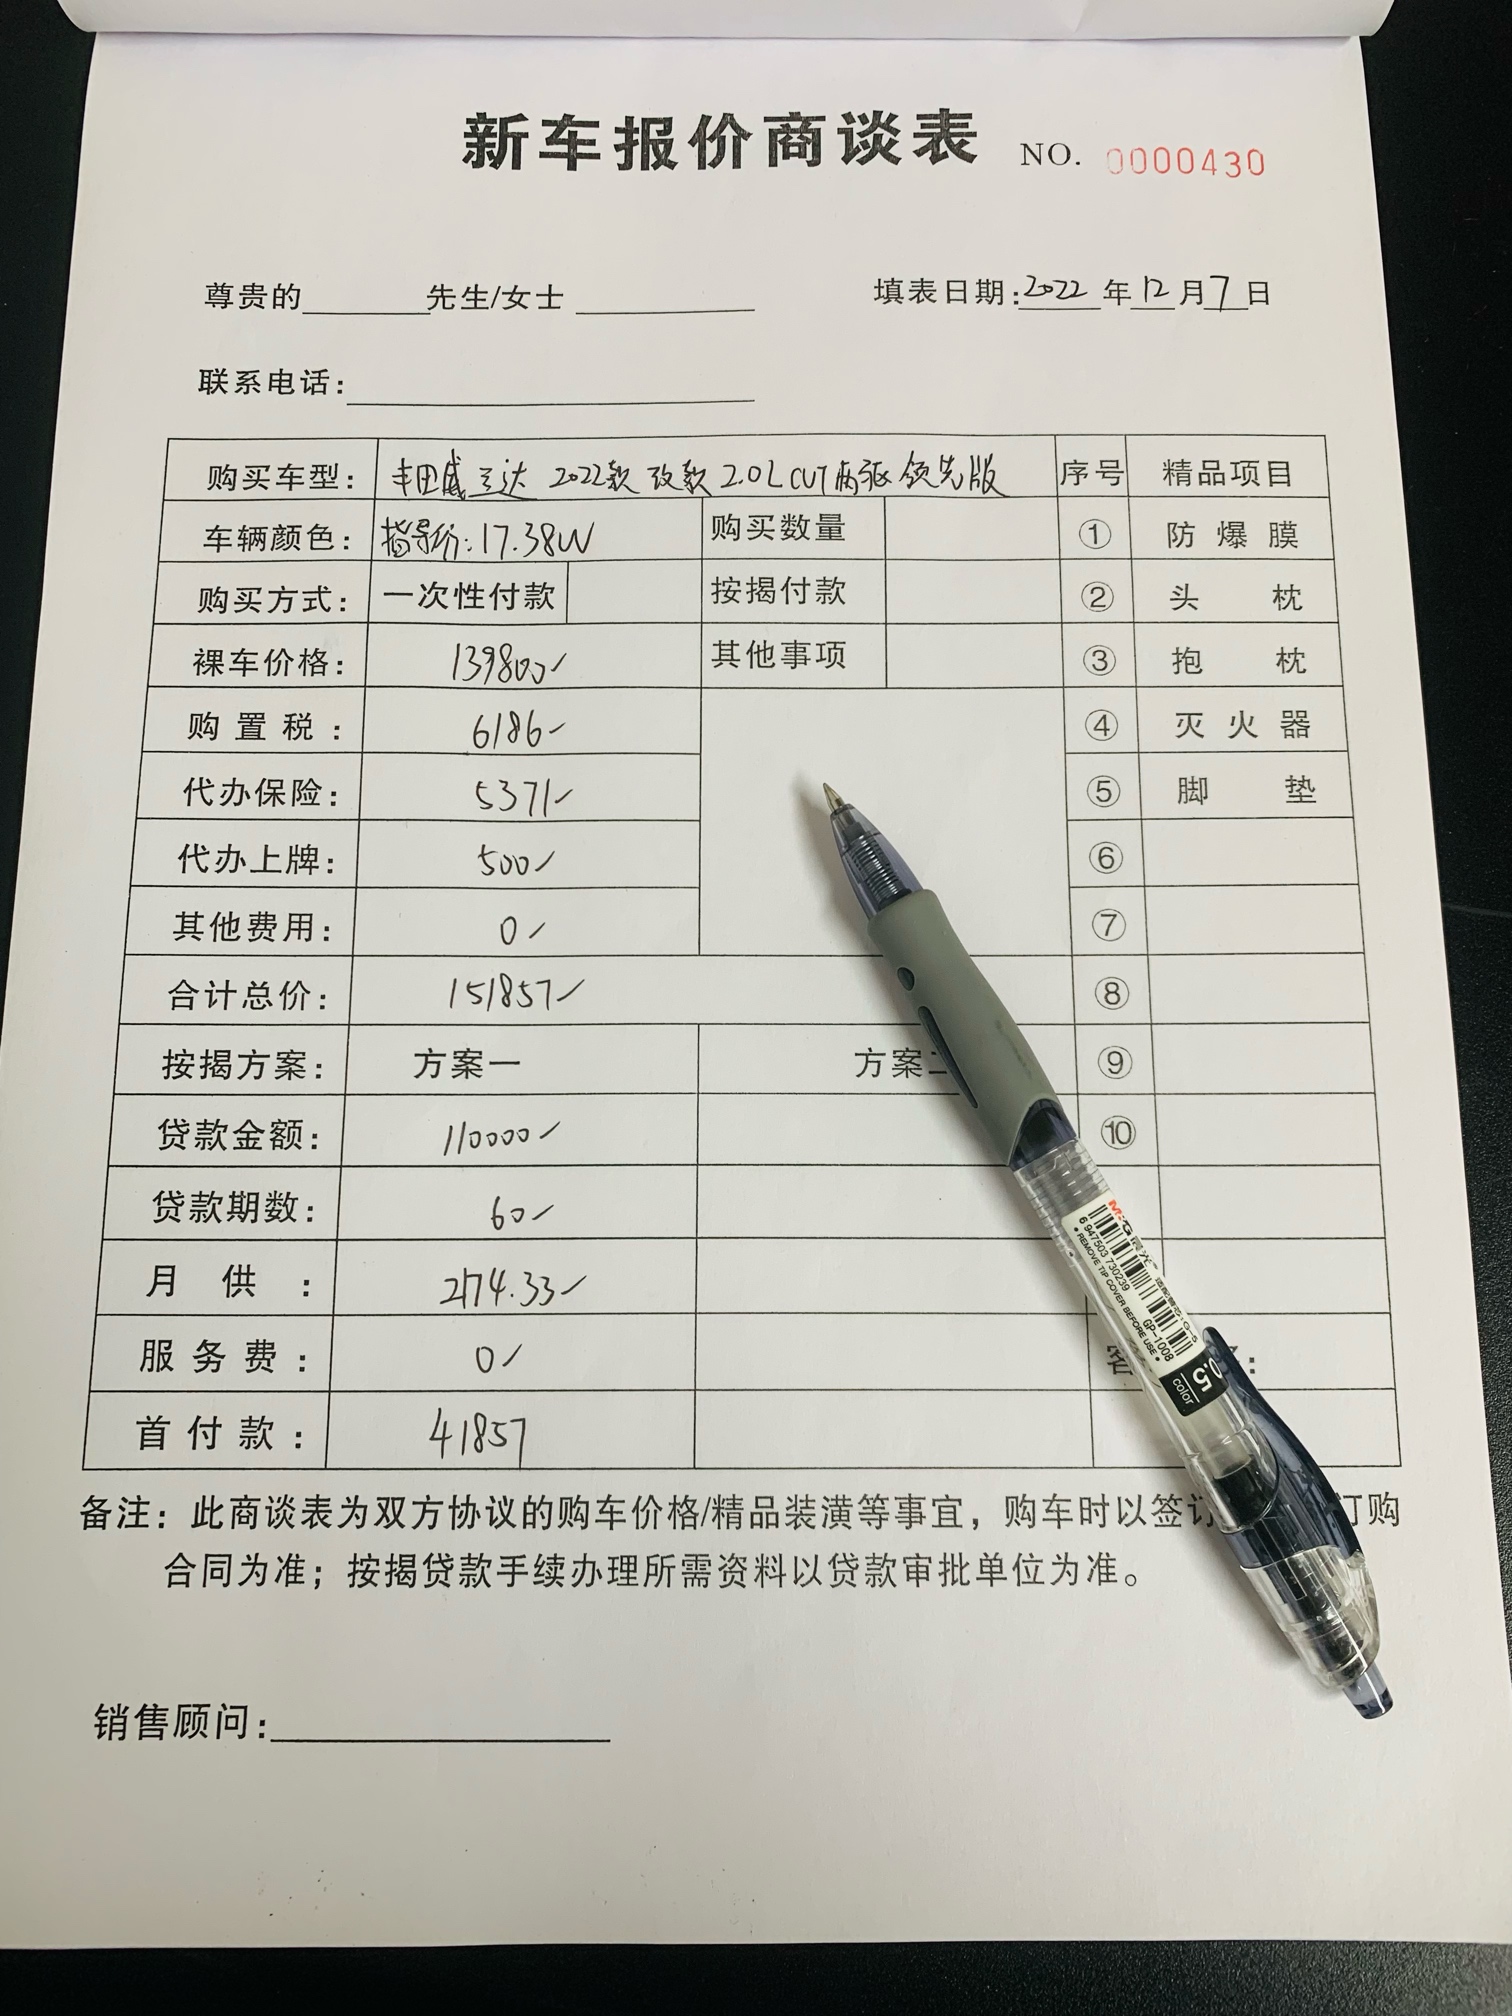 新车报价商谈表 NO. 0000430
尊贵的 先生/女士 填表日期:2022年12月7日
联系电话:
购买车型: 丰田威兰达 2022款 改款 2.0L CVT两驱 领先版 序号 精品项目
车辆颜色: 指导价:17.38W 购买数量 ① 防爆膜
购买方式: 一次性付款 按揭付款 ② 头枕
裸车价格: 139800 其他事项 ③ 抱枕
购置税: 6186 ④ 灭火器
代办保险: 5371 ⑤ 脚垫
代办上牌: 500 ⑥
其他费用: 0 ⑦
合计总价: 151857 ⑧
按揭方案: 方案一 方案二 ⑨
贷款金额: 110000 ⑩
贷款期数: 60
月供: 2174.33
服务费: 0
首付款: 41857
备注:此商谈表为双方协议的购车价格/精品装潢等事宜，购车时以签订 订购
合同为准；按揭贷款手续办理所需资料以贷款审批单位为准。
销售顾问:
M&G
6 947503 730239
REMOVE TIP COVER BEFORE USE
GP-1008
0.5
color